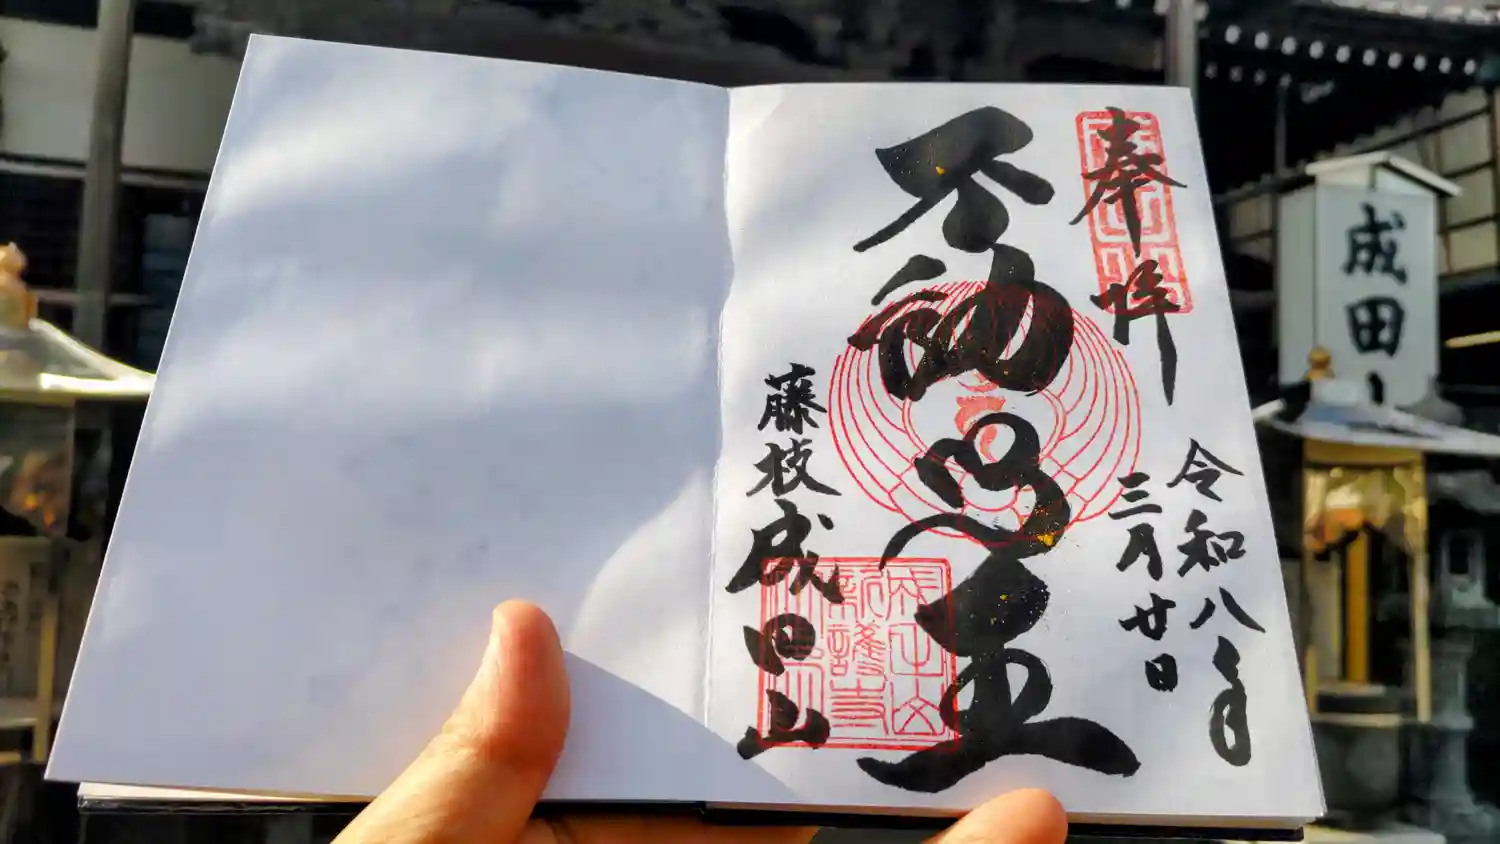 奉拝
令和八年
三月廿日
不動明王
藤枝成田山
成田山
新護寺
成田